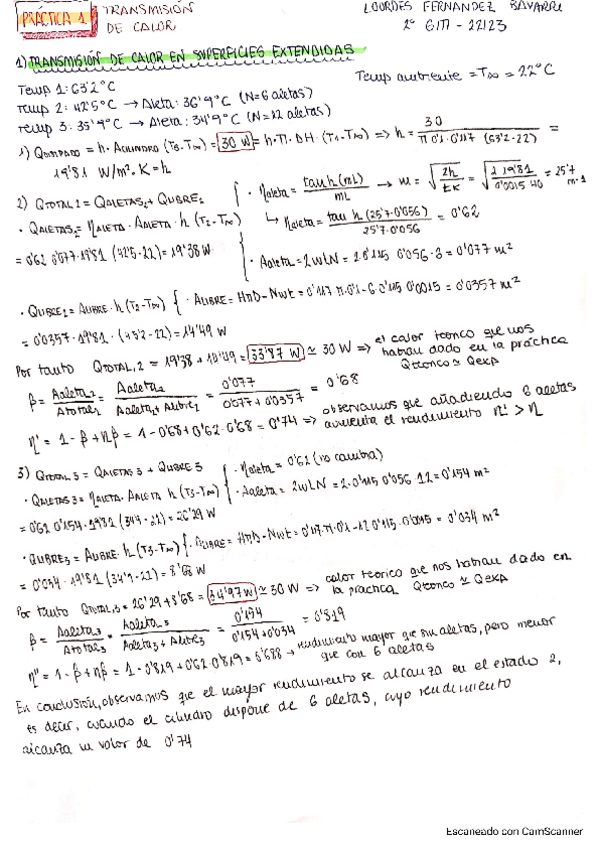 PRÁCTICA 1 TRANSMISIÓN DE CALOR
LOURDES FERNANDEZ
2º GITI - 22/23
1) TRANSMISIÓN DE CALOR EN SUPERFICIES EXTENDIDAS
Temp 1: 63'2ºC
Temp ambiente = T∞ = 22ºC
Temp 2: 42'5ºC → Aleta: 36'9ºC (N=6 aletas)
Temp 3: 35'9ºC → Aleta: 34'9ºC (N=12 aletas)
1) Qdisipado = h · Acilindro (Ts-T∞) = 30 W = h·π·DH·(T1-T∞) => h = 30 / π 0'1·0'117 (63'2-22) =
19'81 W/m²·K = h
2) QTOTAL 2 = QALETAS2 + QLIBRE2
· ηaleta = tanh(mL) / mL → m = √(2h / tK) = √(2 19'81 / 0'0015 40) = 25'7 m-1
· QALETAS2 = ηALETA · AALETA · h (T2-T∞)
↳ ηaleta = tanh (25'7·0'056) / 25'7·0'056 = 0'62
= 0'62 0'077·19'81 (42'5-22) = 19'38 W
· Aaleta = 2wLN = 2·0'115 0'056·3 = 0'077 m²
· QLIBRE2 = ALIBRE · h (T2-T∞) { · ALIBRE = HπD-Nwt = 0'117 π·0'1-6 0'115 0'0015 = 0'0357 m²
= 0'0357·19'81·(43'2-22) = 14'49 W
Por tanto QTOTAL,2 = 19'38 + 14'49 = 33'87 W ≃ 30 W => el calor teorico que nos habian dado en la práctica Qteorico ≃ Qexp
β = Aaleta2 / Atotal2 = Aaleta2 / Aaleta2+Alibre2 = 0'077 / 0'077+0'0357 = 0'68
η' = 1-β+ηβ = 1-0'68+0'62·0'68 = 0'74 => observamos que añadiendo 6 aletas aumenta el rendimiento η' > η
3) QTOTAL 3 = QALETAS 3 + QLIBRE 3
· ηaleta = 0'62 (no cambia)
· QALETAS 3 = ηALETA · AALETA h (T3-T∞)
· Aaleta = 2wLN = 2·0'115 0'056·12 = 0'154 m²
= 0'62 0'154·19'81 (34'9-22) = 26'29 W
· QLIBRE3 = ALIBRE · h (T3-T∞) { · ALIBRE = HπD-Nwt = 0'117·π·0'1-12 0'115·0'0015 = 0'034 m²
= 0'034·19'81 (34'9-22) = 8'68 W
Por tanto QTOTAL,3 = 26'29+8'68 = 34'97 W ≃ 30 W => calor teorico que nos habian dado en la práctica Qteorico ≃ Qexp
β = Aaleta3 / Atotal3 = Aaleta3 / Aaleta3+Alibre3 = 0'154 / 0'154+0'034 = 0'819
η'' = 1-β+ηβ = 1-0'819+0'62·0'819 = 0'688 → rendimiento mayor que sin aletas, pero menor que con 6 aletas
En conclusión, observamos que el mayor rendimiento se alcanza en el estado 2,
es decir, cuando el cilindro dispone de 6 aletas, cuyo rendimiento
alcanza un valor de 0'74
Escaneado con CamScanner